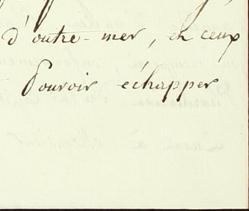 d'outre-mer, en ceux
Pouvoir échapper